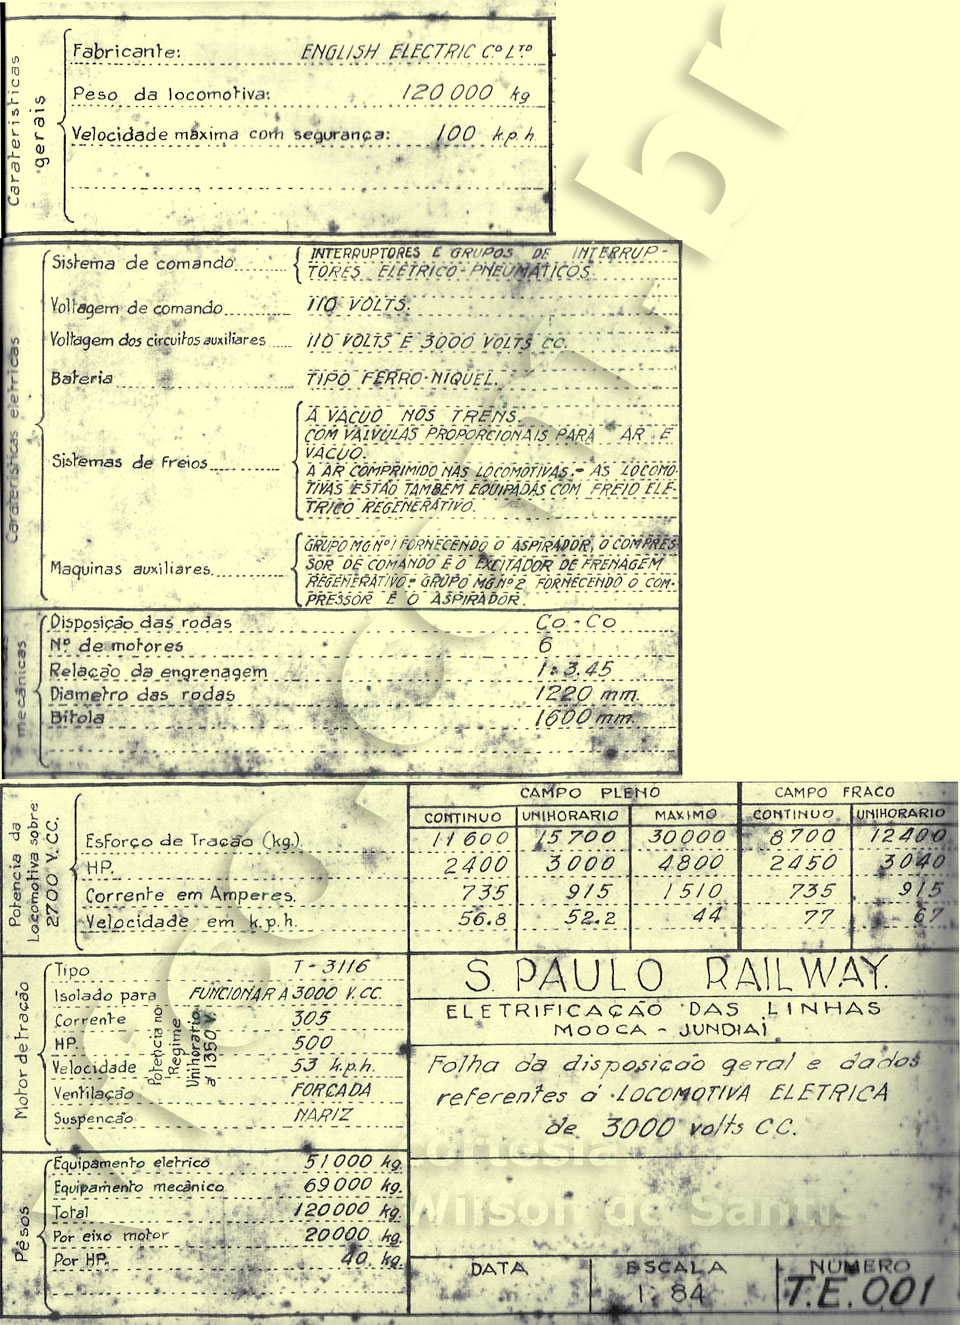 Caraterísticas gerais
Fabricante: ENGLISH ELECTRIC Cº LTD
Peso da locomotiva: 120000 kg
Velocidade maxima com segurança: 100 k.p.h.
Caraterísticas eletricas
Sistema de comando INTERRUPTORES E GRUPOS DE INTERRUP-
TORES ELÉTRICO-PNEUMÁTICOS
Voltagem de comando 110 VOLTS.
Voltagem dos circuitos auxiliares 110 VOLTS E 3000 VOLTS CC.
Bateria TIPO FERRO-NIQUEL.
Sistemas de Freios
A VACUO NOS TRENS.
COM VALVULAS PROPORCIONAIS PARA AR E
VÁCUO.
A AR COMPRIMIDO NAS LOCOMOTIVAS.- AS LOCOMO-
TIVAS ESTÃO TAMBEM EQUIPADAS COM FREIO ELÉ-
TRICO REGENERATIVO.
Maquinas auxiliares.
GRUPO MG Nº1 FORNECENDO O ASPIRADOR, O COMPRES-
SOR DE COMANDO E O EXCITADOR DE FRENAGEM
REGENERATIVO.- GRUPO MG.Nº2 FORNECENDO O COM-
PRESSOR E O ASPIRADOR.
mecânicas
Disposição das rodas Co-Co
Nº de motores 6
Relação da engrenagem 1:3.45
Diametro das rodas 1220 mm.
Bitola 1600 mm.
Potencia da Locomotiva sobre 2700 V. CC.
CAMPO PLENO CAMPO FRACO
CONTINUO UNIHORARIO MAXIMO CONTINUO UNIHORARIO
Esforço de Tração (kg.) 11600 15700 30000 8700 12400
HP. 2400 3000 4800 2450 3040
Corrente em Amperes. 735 915 1510 735 915
Velocidade em k.p.h. 56.8 52.2 44 77 67
Motor de tração
Tipo T-3116
Isolado para FUNCIONAR A 3000 V. CC.
Potencia no Regime Unihorario a 1350 V.
Corrente 305
HP. 500
Velocidade 53 k.p.h.
Ventilação FORÇADA
Suspencão NARIZ
Pêsos
Equipamento eletrico 51000 kg.
Equipamento mecânico 69000 kg.
Total 120000 kg.
Por eixo motor 20000 kg.
Por HP. 40 kg.
S. PAULO RAILWAY.
ELETRIFICAÇÃO DAS LINHAS
MOOCA - JUNDIAÍ
Folha da disposição geral e dados
referentes á LOCOMOTIVA ELETRICA
de 3000 volts CC.
Cortesia
Wilson de Santis
DATA ESCALA NUMERO
1:84 T.E. 001